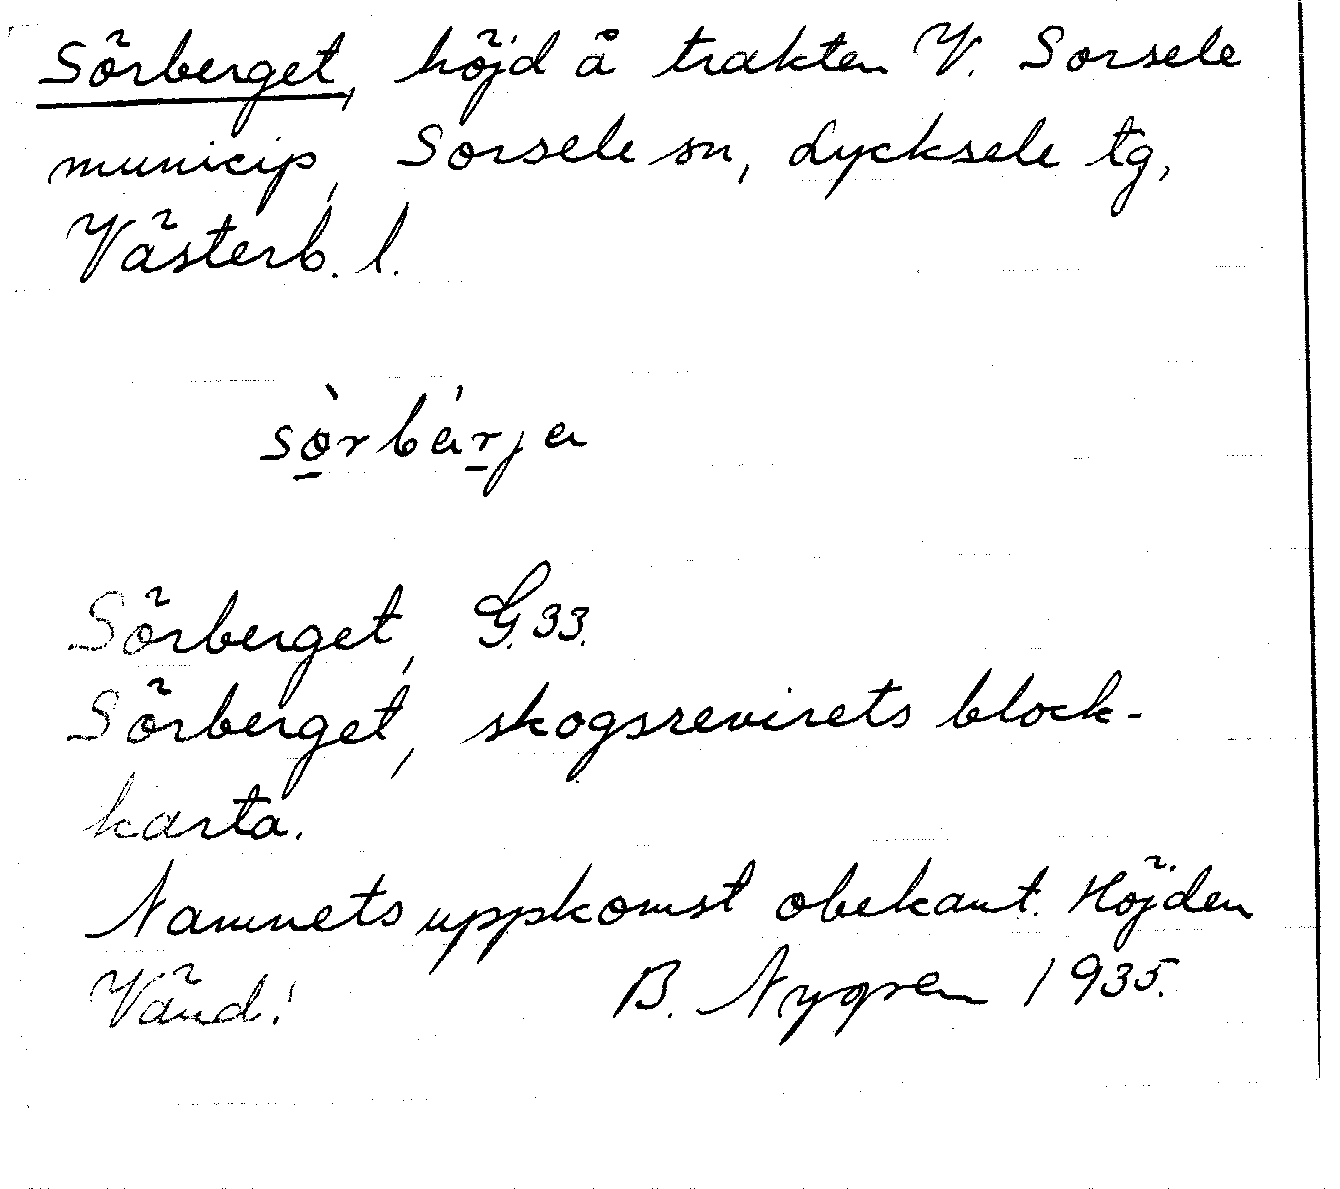 Sörberget, höjd å trakten V. Sorsele
municip, Sorsele sn, Lycksele tg,
Västerb. l.
sö̀rbárja
Sörberget, G.33.
Sörberget, skogsrevirets block-
karta.
Namnets uppkomst obekant. Höjden
Vänd! B. Nygren 1935.